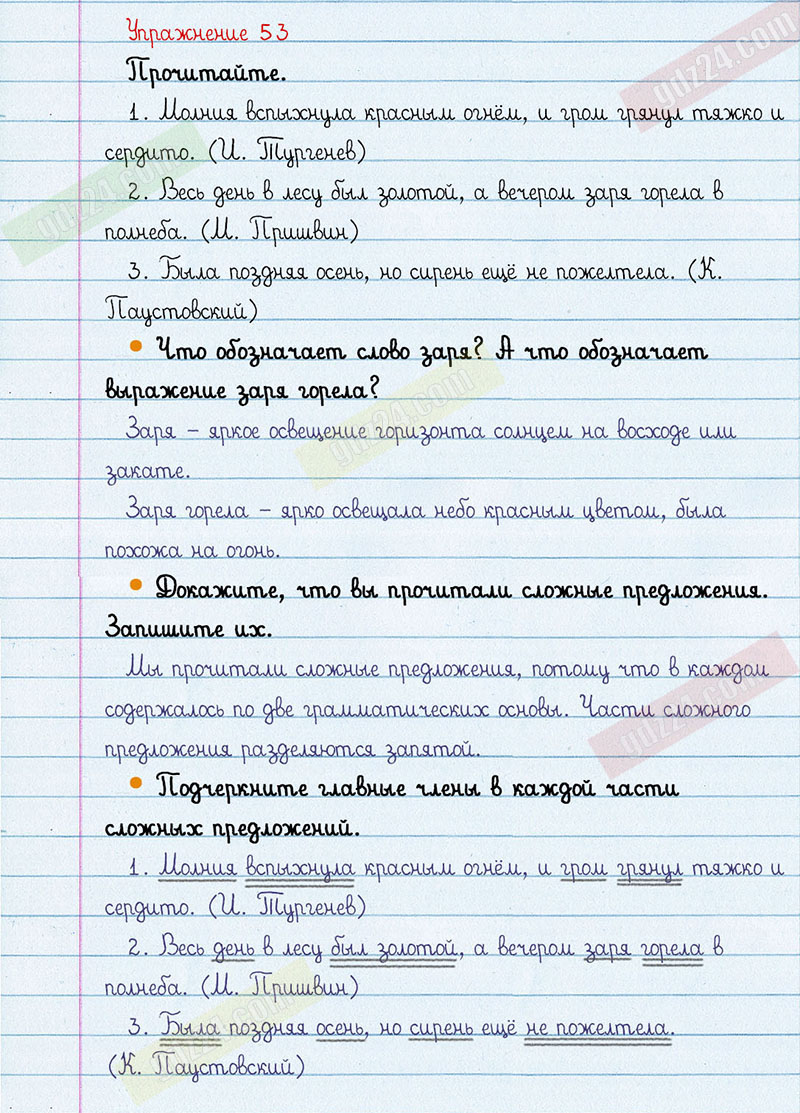 Упражнение 53
gdz24.com
Прочитайте.
1. Молния вспыхнула красным огнём, и гром грянул тяжко и
сердито. (И. Тургенев)
gdz24.com
2. Весь день в лесу был золотой, а вечером заря горела в
полнеба. (М. Пришвин)
3. Была поздняя осень, но сирень ещё не пожелтела. (К.
Паустовский)
• Что обозначает слово заря? А что обозначает
выражение заря горела?
gdz24.com
Заря – яркое освещение горизонта солнцем на восходе или
закате.
Заря горела – ярко освещала небо красным цветом, была
похожа на огонь.
• Докажите, что вы прочитали сложные предложения.
Запишите их.
Мы прочитали сложные предложения, потому что в каждом
содержалось по две грамматических основы. Части сложного
gdz24.com
предложения разделяются запятой.
• Подчеркните главные члены в каждой части
сложных предложений.
1. Молния вспыхнула красным огнём, и гром грянул тяжко и
сердито. (И. Тургенев)
2. Весь день в лесу был золотой, а вечером заря горела в
полнеба. (М. Пришвин)
gdz24.com
3. Была поздняя осень, но сирень ещё не пожелтела.
(К. Паустовский)